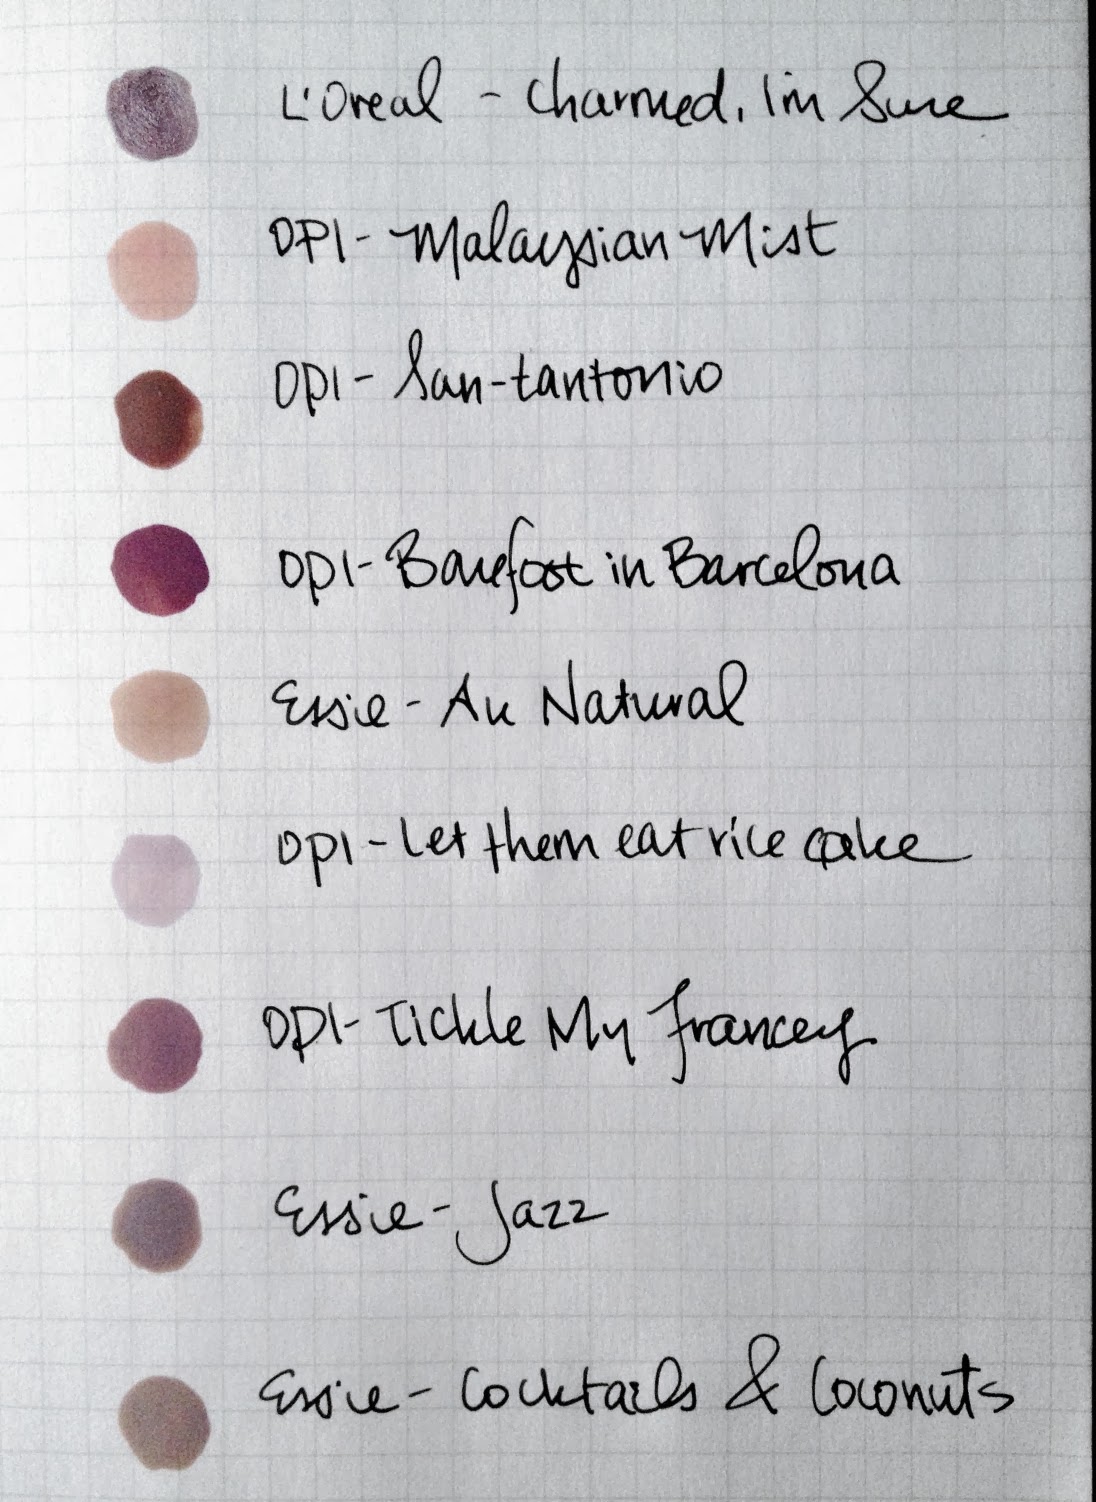 L'Oreal - Charmed, I'm Sure
OPI - Malaysian Mist
OPI - San-tantonio
OPI - Barefoot in Barcelona
Essie - Au Natural
OPI - Let them eat rice cake
OPI - Tickle My Francey
Essie - Jazz
Essie - Cocktails & Coconuts